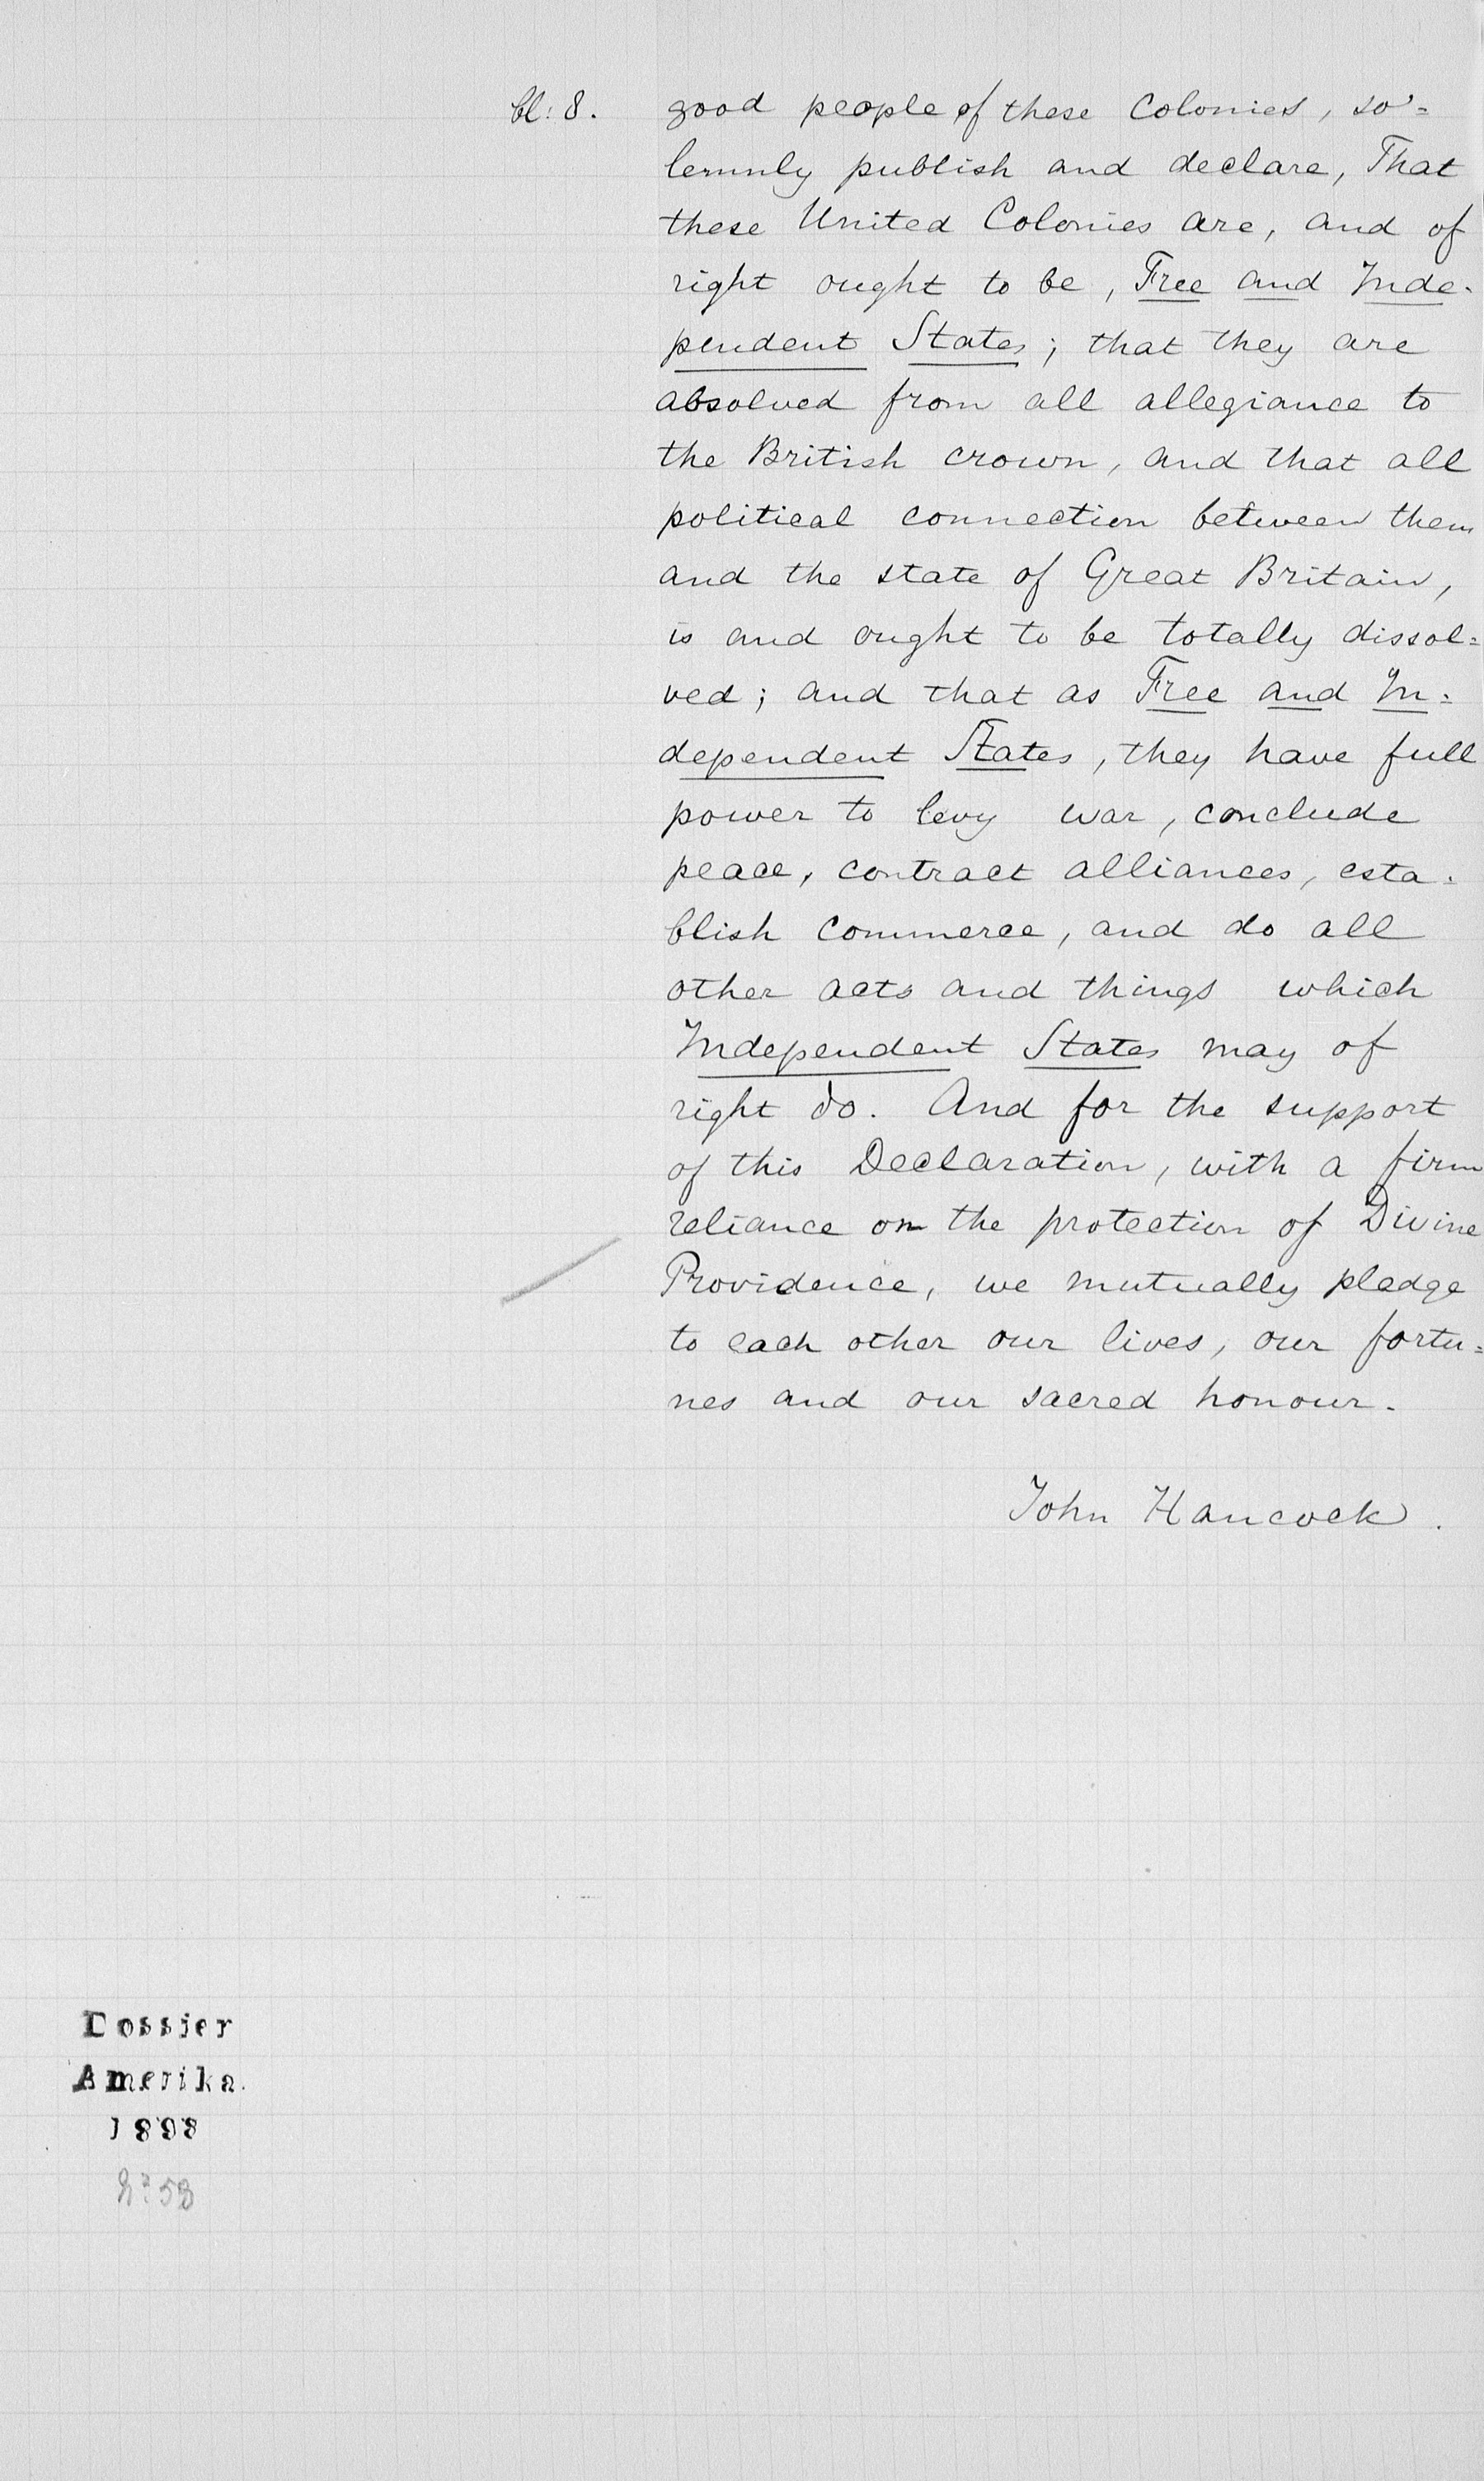 bl: 8.
good people of these Colonies, so=
lemnly publish and declare, That
these United Colonies are, and of
right ought to be, Free and Inde-
pendent States; that they are
absolved from all allegiance to
the British crown, and that all
political connection between them
and the state of Great Britain,
is and ought to be totally dissol=
ved; and that as Free and In=
dependent States, they have full
power to levy war, conclude
peace, contract alliances, esta-
blish commerce, and do all
other acts and things which
Independent States may of
right do. And for the support
of this Declaration, with a firm
reliance on the protection of Divine
Providence, we mutually pledge
to each other our lives, our fortu=
nes and our sacred honour.
John Hancock.
Dossier
Amerika.
1898
58